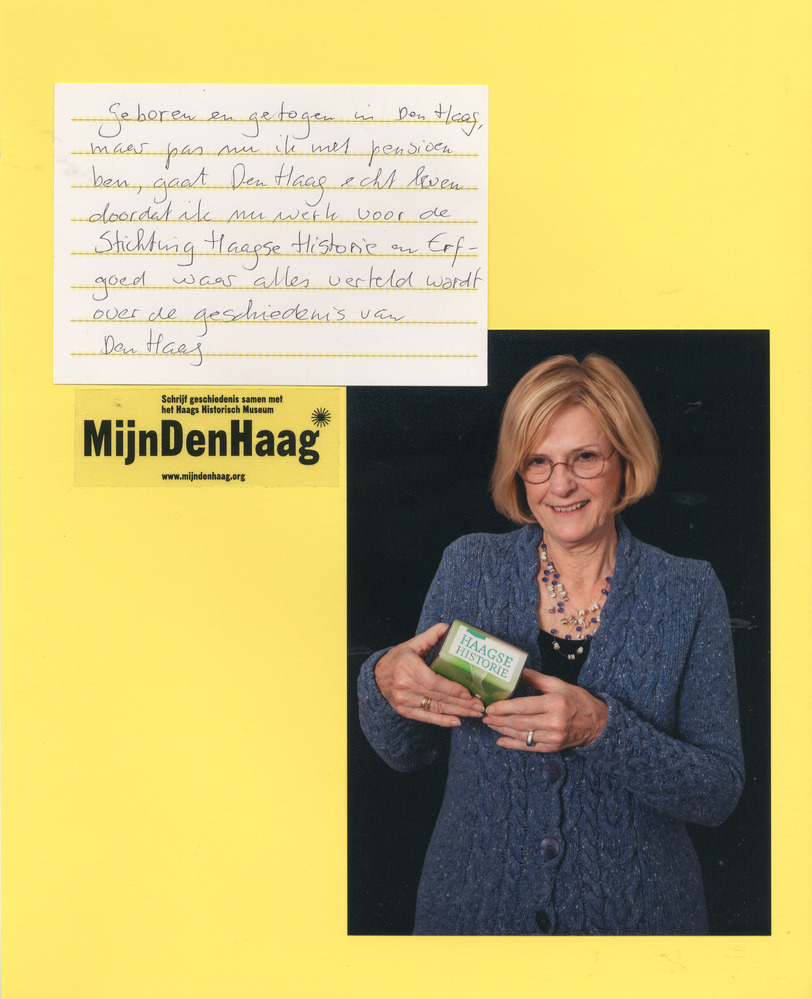 Geboren en getogen in Den Haag,
maar pas nu ik met pensioen
ben, gaat Den Haag echt leven
doordat ik nu werk voor de
Stichting Haagse Historie en Erf-
goed waar alles verteld wordt
over de geschiedenis van
Den Haag
Schrijf geschiedenis samen met
het Haags Historisch Museum
MijnDenHaag
www.mijndenhaag.org
HAAGSE
HISTORIE